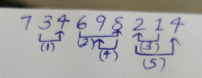 7 3 4 6 9 8 2 1 4
(1) (2) (3)
(4) (5)